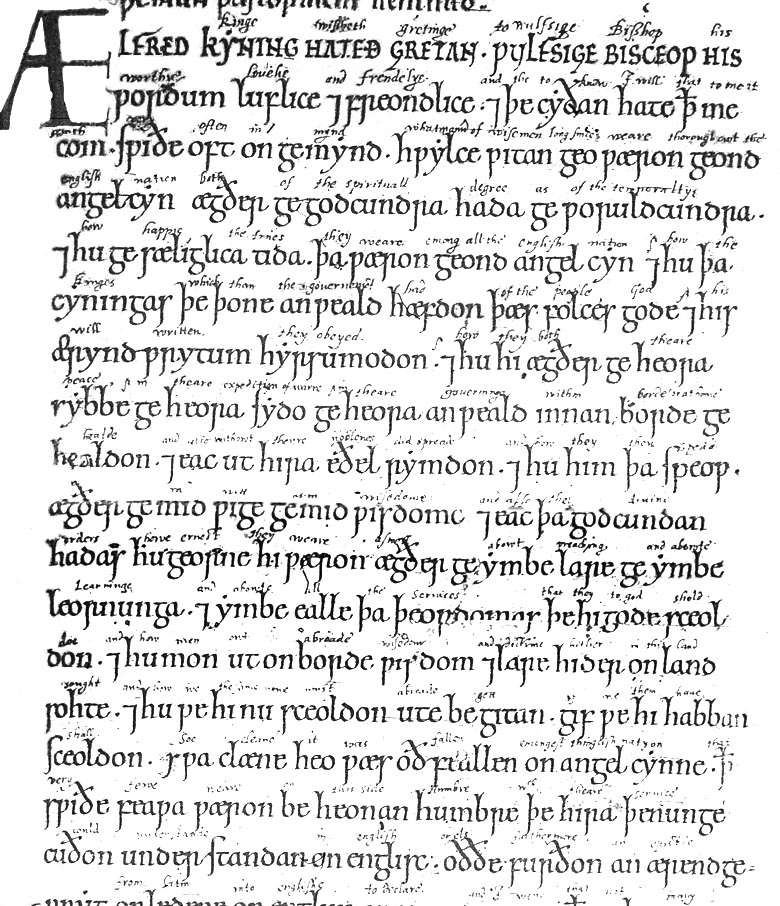 kinge wisheth gretinge to wulfsige Bishop his
ÆLFRED kẏNING HATEÐ GRETAN · ǷẏLFSIGE BISCEOP HIS
worthye lovelie and frendelye and the to know I will that to me it
ƿordum luflice ⁊ freondlice · ⁊ þe cẏðan hate ꝥ me
often in mind what manner of wisemen long since weare thorough out the
com · sƿiðe oft on gemẏnd · hƿẏlce ƿitan geo ƿæron geond
english nation both of the spirituall degree as of the temporaltye
angelcẏn ægðer ge godcundra hada ge ƿoruldcundra ·
how happie the times they weare emong all the english nation how the
⁊ hu gesæliglica tida · þa ƿæron geond angel cẏn ⁊ hu þa
kinges which than the governement had of the people God his
cẏningas þe þone anƿeald hæfdon þæs folces gode ⁊ his
will written they obeyed how they both theare
ærẏndƿrẏtum hẏrsumodon · ⁊ hu hi ægðer ge heora
peace theare expedition of warre theare governinge within
sẏbbe ge heora sẏdo ge heora anƿeald innan borde ge
healde and also without theare noblenes did spreade and how they then
healdon · ⁊ eac ut hira eðel rẏmdon · ⁊ hu him þa speop ·
wisedome and also the divine
ægðer ge mid ƿige ge mid ƿisdome ⁊ eac þa godcundan
orders howe ernest they weare about preaching and aboute
hadas hu georne hi ƿæron ægðer ge ẏmbe lare ge ẏmbe
Learninge and aboute all the Services that they to god shold
leornunga · ⁊ ẏmbe ealle þa þeoƿdomas þe hi gode sceol
doe and how men out abroade wisdom and doctrine hither in this land
don · ⁊ hu mon ut on borde ƿisdom ⁊ lare hider on land
sought and how we the same now must abroade gett if we them have
sohte · ⁊ hu ƿe hi nu sceoldon ute begitan · gif ƿe hi habban
shall Soe cleane it was fallen emongest
sceoldon · sƿa clæne heo ƿæs oð feallen on angel cẏnne · ꝥ
very fewe weare on this side humbre theare service
sƿiðe feaƿa ƿæron be heonan humbre þe hira þenunge
could understande in english or els furthermore an epistle
cuðon understandan on englisc · oððe furðon an ærendge
from Latin into englishe to declare